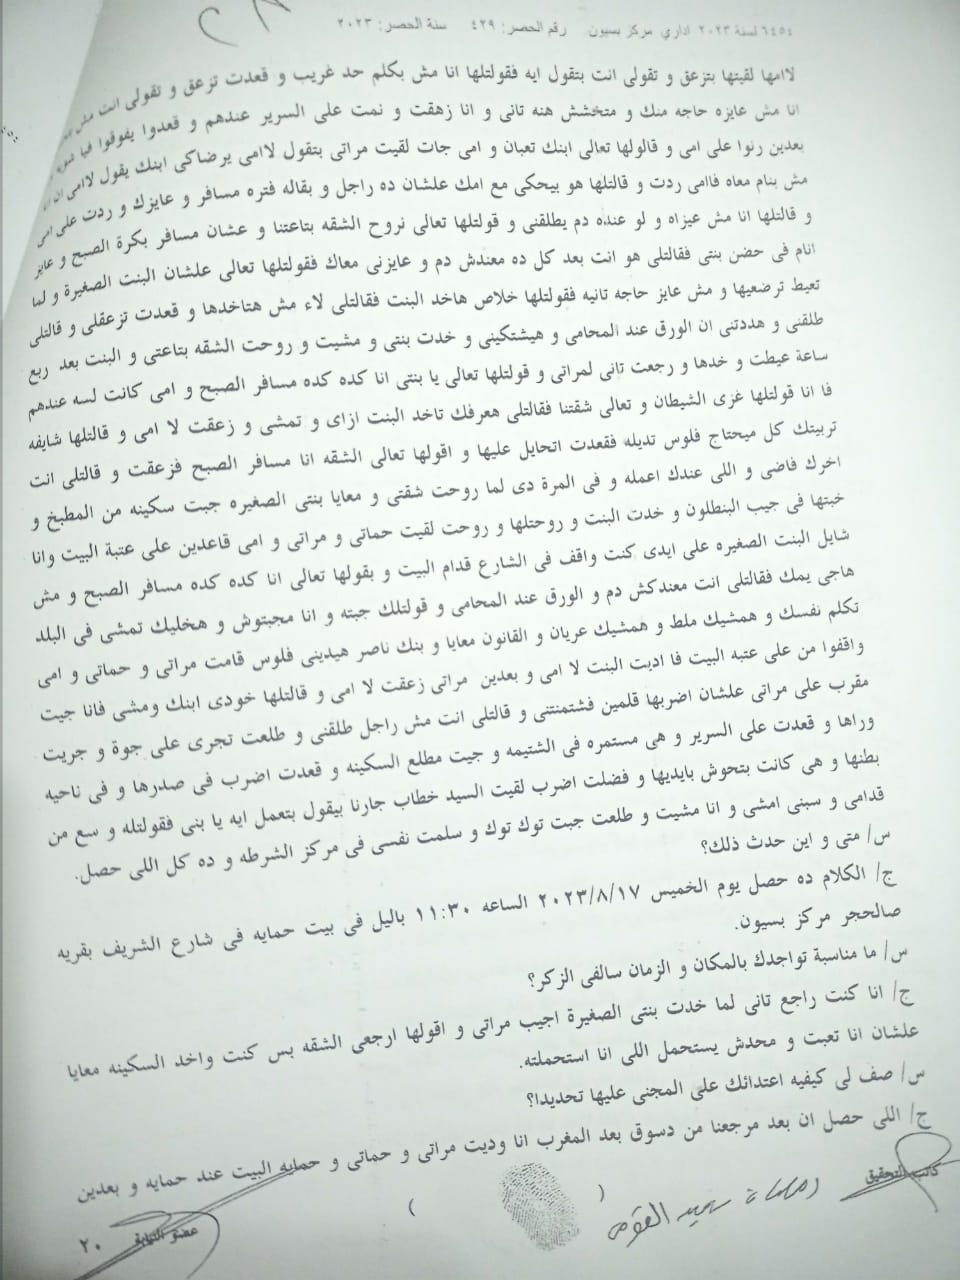 ٦٤٥٤ لسنة ٢٠٢٣ اداري مركز بسيون رقم الحصر: ٤٢٩ سنة الحصر: ٢٠٢٣
لاامها لقيتها بتزعق و تقولى انت بتقول ايه فقولتلها انا مش بكلم حد غريب و قعدت تزعق و تقولى انت مش
انا مش عايزه حاجه منك و متخشش هنه تانى و انا زهقت و نمت على السرير عندهم و قعدوا يفوقوا فيا
بعدين رنوا على امى و قالولها تعالى ابنك تعبان و امى جات لقيت مراتى بتقول لاامى يرضاكى ابنك يقول لاامى
مش بنام معاه فاامى ردت و قالتلها هو بيحكى مع امك علشان ده راجل و بقاله فتره مسافر و عايزك و ردت على امى
و قالتلها انا مش عيزاه و لو عنده دم يطلقنى و قولتلها تعالى نروح الشقه بتاعتنا و عشان مسافر بكرة الصبح و عايز
انام فى حضن بنتى فقالتلى هو انت بعد كل ده معندش دم و عايزنى معاك فقولتلها تعالى علشان البنت الصغيرة و لما
تعيط ترضعيها و مش عايز حاجه تانيه فقولتلها خلاص هاخد البنت فقالتلى لاء مش هتاخدها و قعدت تزعقلى و قالتلى
طلقنى و هددتنى ان الورق عند المحامى و هيشتكينى و خدت بنتى و مشيت و روحت الشقه بتاعتى و البنت بعد ربع
ساعة عيطت و خدها و رجعت تانى لمراتى و قولتلها تعالى يا بنتى انا كده كده مسافر الصبح و امى كانت لسه عندهم
فا انا قولتلها غزى الشيطان و تعالى شقتنا فقالتلى هعرفك تاخد البنت ازاى و تمشى و زعقت لا امى و قالتلها شايفه
تربيتك كل ميحتاج فلوس تديله فقعدت اتحايل عليها و اقولها تعالى الشقه انا مسافر الصبح فزعقت و قالتلى انت
اخرك فاضى و اللى عندك اعمله و فى المرة دى لما روحت شقتى و معايا بنتى الصغيره جبت سكينه من المطبخ و
خبتها فى جيب البنطلون و خدت البنت و روحتلها و روحت لقيت حماتى و مراتى و امى قاعدين على عتبة البيت وانا
شايل البنت الصغيره على ايدى كنت واقف فى الشارع قدام البيت و بقولها تعالى انا كده كده مسافر الصبح و مش
هاجى يمك فقالتلى انت معندكش دم و الورق عند المحامى و قولتلك جبته و انا مجبتوش و هخليك تمشى فى البلد
تكلم نفسك و همشيك ملط و همشيك عريان و القانون معايا و بنك ناصر هيدينى فلوس قامت مراتى و حماتى و امى
واقفوا من على عتبه البيت فا اديت البنت لا امى و بعدين مراتى زعقت لا امى و قالتلها خودى ابنك ومشى فانا جيت
مقرب على مراتى علشان اضربها قلمين فشتمتنى و قالتلى انت مش راجل طلقنى و طلعت تجرى على جوة و جريت
وراها و قعدت على السرير و هى مستمره فى الشتيمه و جيت مطلع السكينه و قعدت اضرب فى صدرها و فى ناحيه
بطنها و هى كانت بتحوش بايديها و فضلت اضرب لقيت السيد خطاب جارنا بيقول بتعمل ايه يا بنى فقولتله و سع من
قدامى و سبنى امشى و انا مشيت و طلعت جبت توك توك و سلمت نفسى فى مركز الشرطه و ده كل اللى حصل.
س/ متى و اين حدث ذلك؟
ج/ الكلام ده حصل يوم الخميس ٢٠٢٣/٨/١٧ الساعه ١١:٣٠ باليل فى بيت حمايه فى شارع الشريف بقريه
صالحجر مركز بسيون.
س/ ما مناسبة تواجدك بالمكان و الزمان سالفى الزكر؟
ج/ انا كنت راجع تانى لما خدت بنتى الصغيرة اجيب مراتى و اقولها ارجعى الشقه بس كنت واخد السكينه معايا
علشان انا تعبت و محدش يستحمل اللى انا استحملته.
س/ صف لى كيفيه اعتدائك على المجنى عليها تحديدا؟
ج/ اللى حصل ان بعد مرجعنا من دسوق بعد المغرب انا وديت مراتى و حماتى و حمايه البيت عند حمايه و بعدين
كاتب التحقيق
( )
عضو النيابة
٢٠